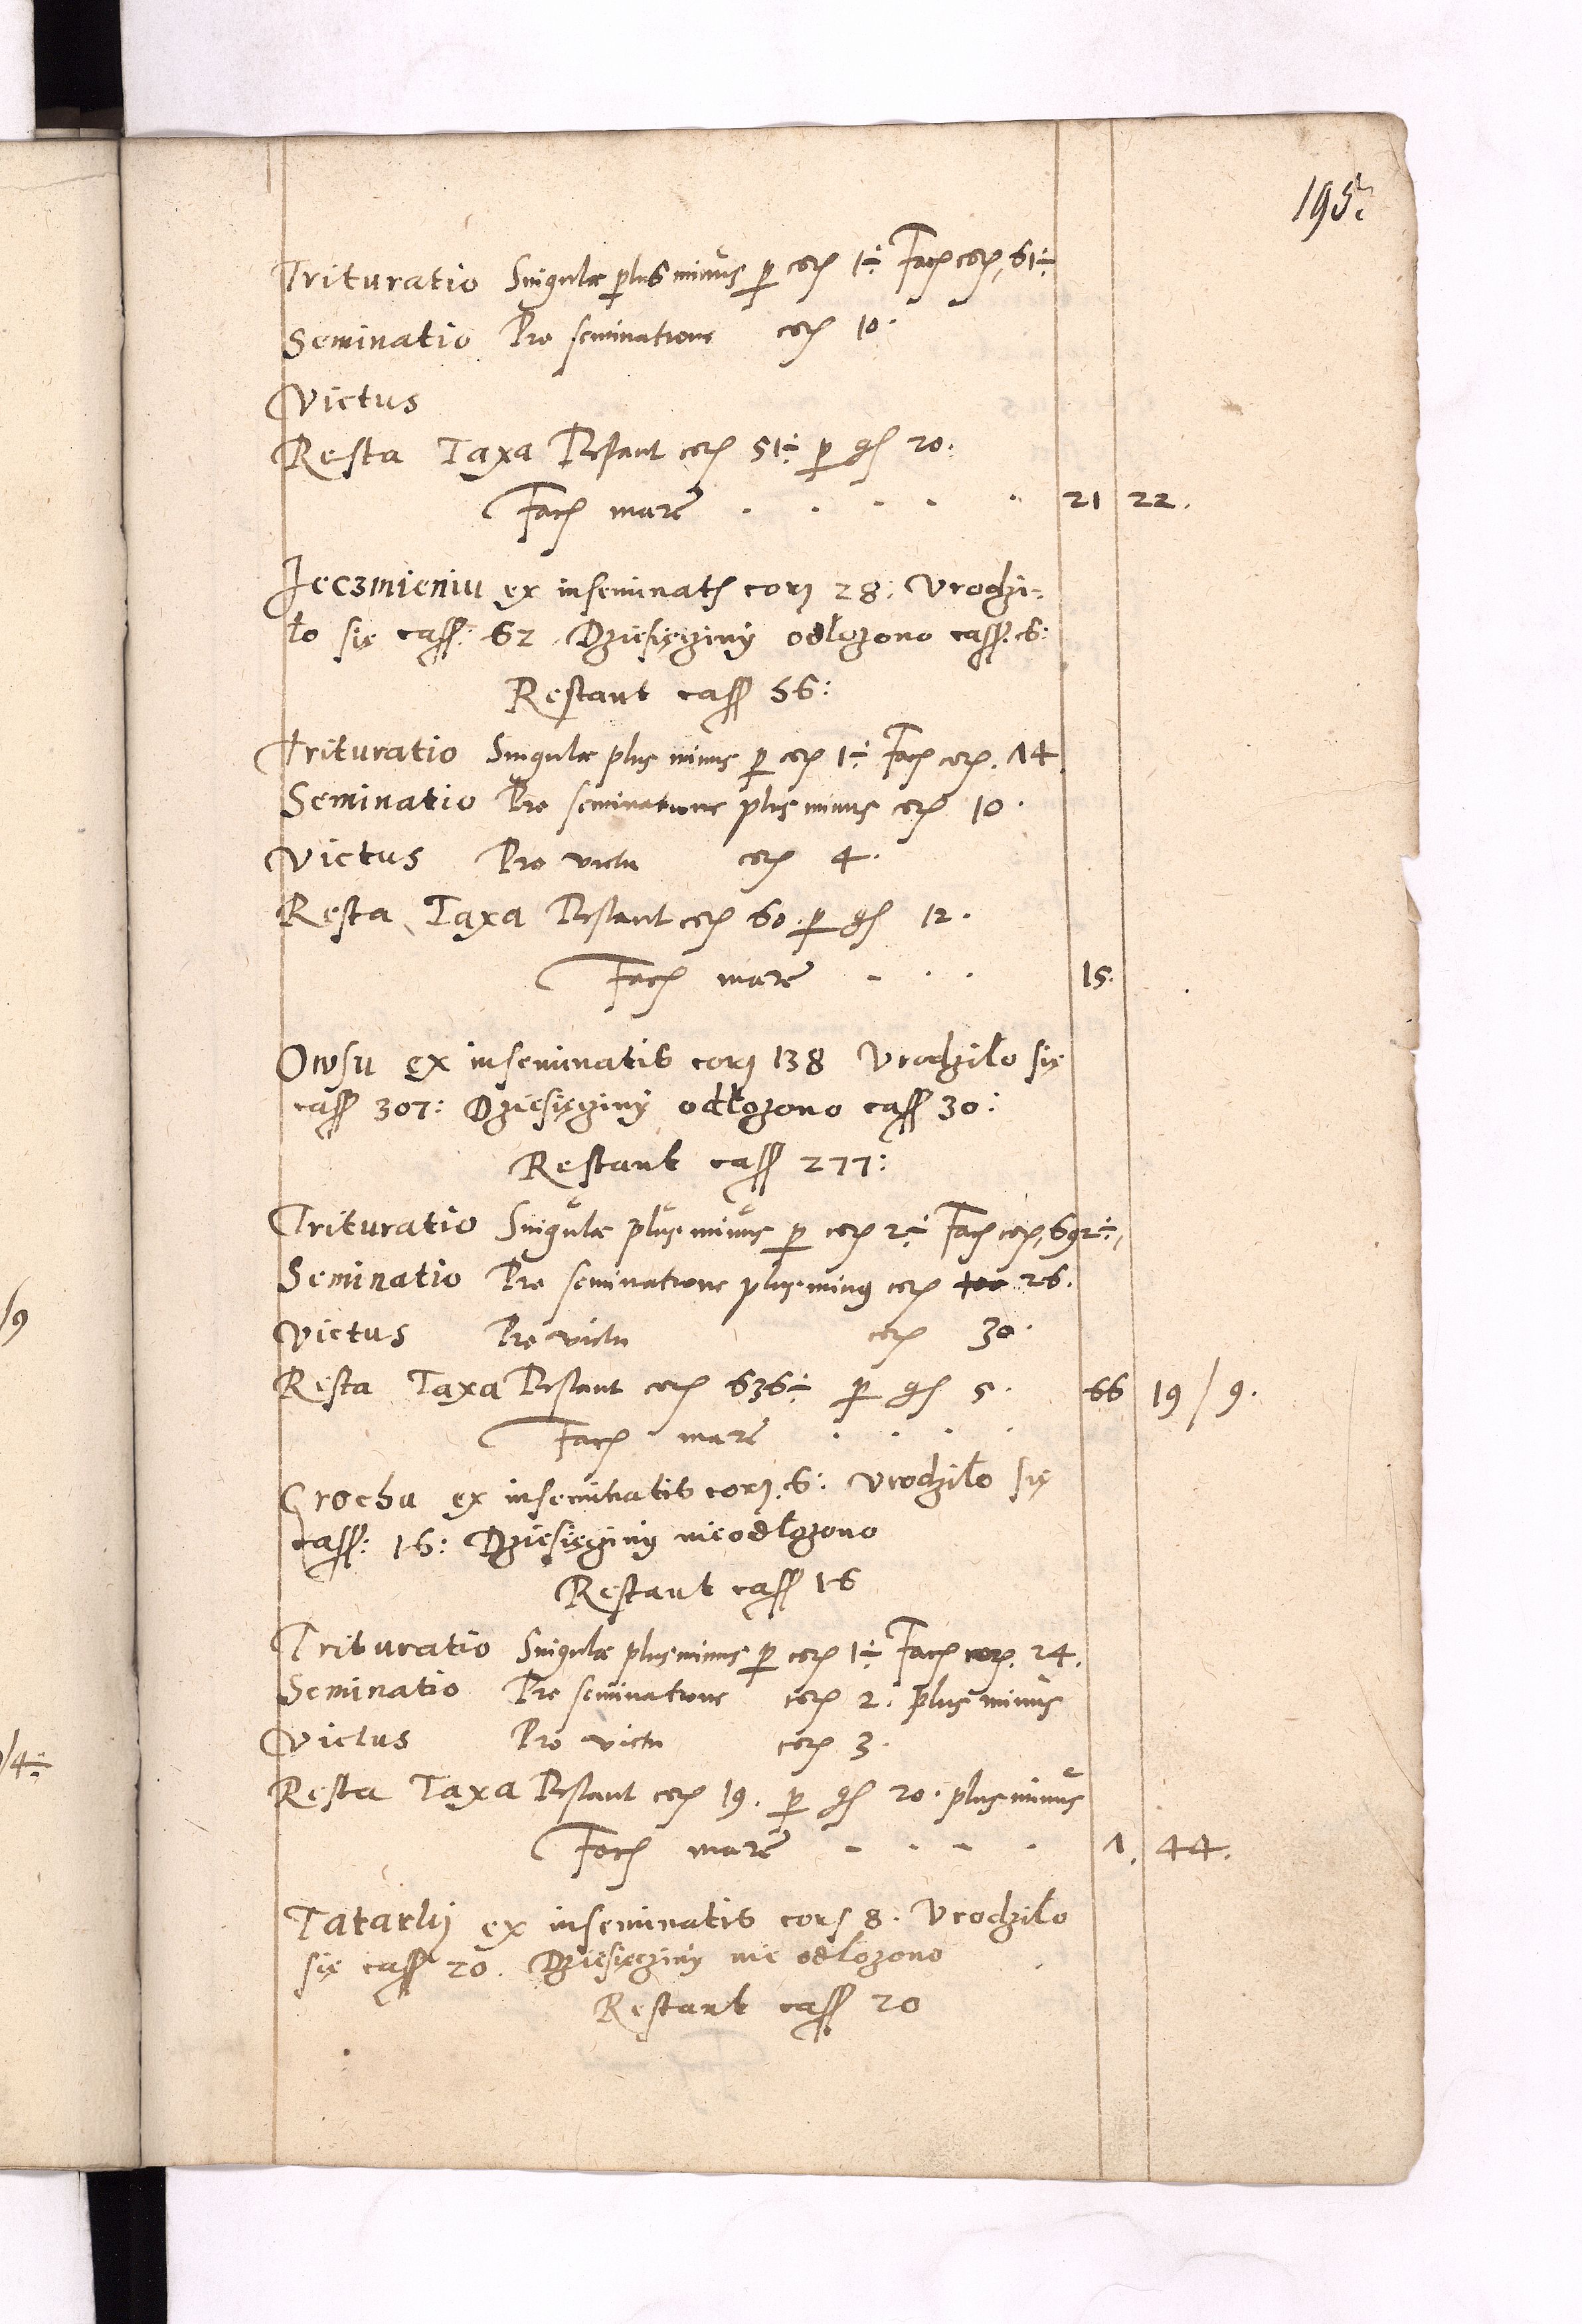 195.
Trituratio Singulæ plus minus p cor 1÷ Facit cor. 61÷
Seminatio Pro seminatione cor 10.
Victus
Resta Taxa Restant cor 51÷ p gs 20.
Facit marc . . . . . 21 22.
Jeczmieniu ex inseminatis cori 28: Vrodzi-
ło się cass: 62 Dziesięciny odłozono cass. 6:
Restant cass 56:
Trituratio Singulæ plus minus p cor 1÷ Facit cor. 14
Seminatio Pro seminatione plus minus cor 10.
Victus Pro victu cor 4.
Resta Taxa Restant cor 60. p gs 12.
Facit marc - . . 15.
Owsu ex inseminatis cori 138 Vrodziło się
cass 307: Dziesięciny odłozono cass 30:
Restant cass 277:
Trituratio Singulæ plus minus p cor 2÷ Facit cor, 692÷,
Seminatio Pro seminatione plus minus cor 26.
Victus Pro victu cor 30.
Resta Taxa Restant cor 636÷ p gs 5. 66 19/9.
Facit marc . . . .
Grochu ex inseminatis cori. 6: Vrodziło się
cass: 16: Dziesięciny nieodłozono
Restant cass 16
Trituratio Singulæ plus minus p cor 1÷ Facit cor. 24.
Seminatio Pro seminatione cor 2. plus minus
Victus Pro victu cor 3.
Resta Taxa Restant cor 19. p gs 20. plus minus
Facit marc - . - . 1. 44.
Tatarkij ex inseminatis cors 8. Vrodziło
się cass 20. Dziesięciny nie odłozono
Restant cass 20
/9
/4÷